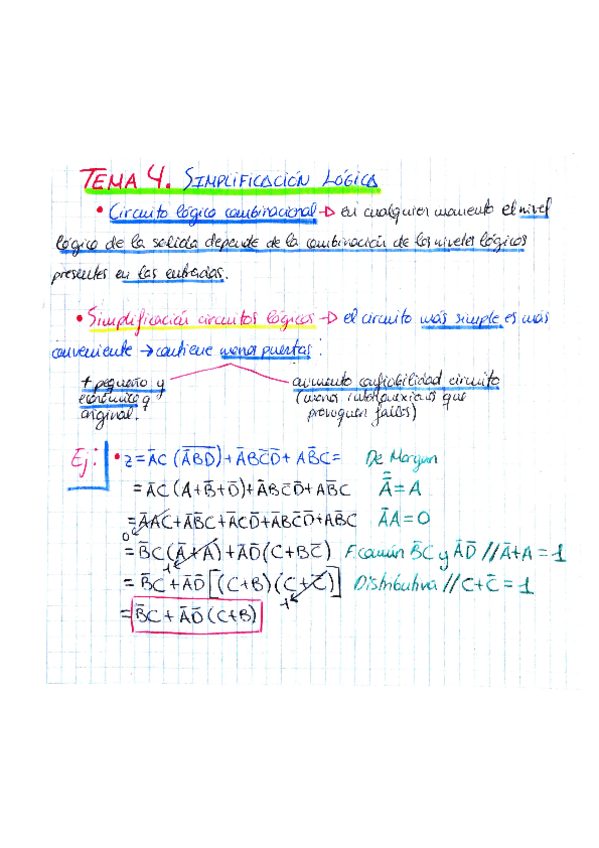 TEMA 4. SIMPLIFICACIÓN LÓGICA
• Circuito lógico combinacional → en cualquier momento el nivel
lógico de la salida depende de la combinación de los niveles lógicos
presentes en las entradas.
• Simplificación circuitos lógicos → el circuito más simple es más
conveniente → contiene menos puertas:
+ pequeño y económico q original.
aumento confiabilidad circuito
(menos interconexiones que
provoquen fallos)
Ej: • z = A̅C (A̅B̅D̅) + A̅BC̅D̅ + AB̅C = De Morgan
= A̅C (A+B̅+D̅) + A̅BC̅D̅ + AB̅C A̿ = A
= A̅AC + A̅B̅C + A̅CD̅ + A̅BC̅D̅ + AB̅C A̅A = 0
0
= B̅C (A̅+A) + A̅D̅ (C+BC̅) F. común B̅C y A̅D̅ // A̅+A = 1
1
= B̅C + A̅D̅ [(C+B) (C+C̅)] Distributiva // C+C̅ = 1
1
= B̅C + A̅D̅ (C+B)